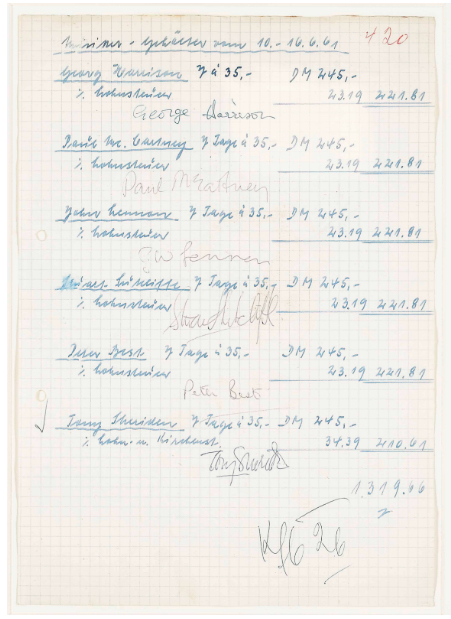 Musiker - Gehälter vom 10. - 16.6.61 420
Georg Harrison 7 à 35,- DM 245,-
% Lohnsteuer 23.19 221.81
George Harrison
Paul Mc. Cartney 7 Tage à 35,- DM 245,-
% Lohnsteuer 23.19 221.81
Paul McCartney
John Lennon 7 Tage à 35,- DM 245,-
% Lohnsteuer 23.19 221.81
J W Lennon
7 Tage à 35,- DM 245,-
% Lohnsteuer 23.19 221.81
Stuart Sutcliffe
Peter Best 7 Tage à 35,- DM 245,-
% Lohnsteuer 23.19 221.81
Peter Best
Tony Sheridan 7 Tage à 35,- DM 245,-
% Lohn- u. Kirchenst. 34.39 210.61
Tony Sheridan
1.319.66